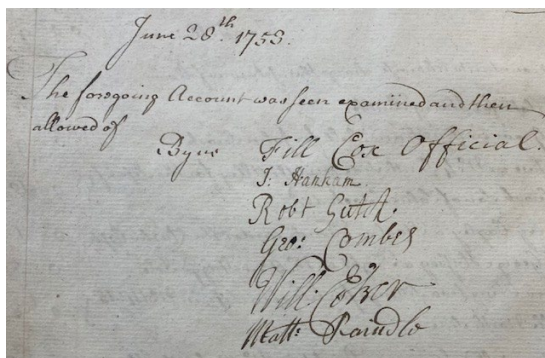 June 28th. 1753.
The foregoing Account was seen examined and then
allowed of
By us Fill Cox Official.
J: Hanham
Robt Gutch.
Geo: Combes
Will: 
Matt: